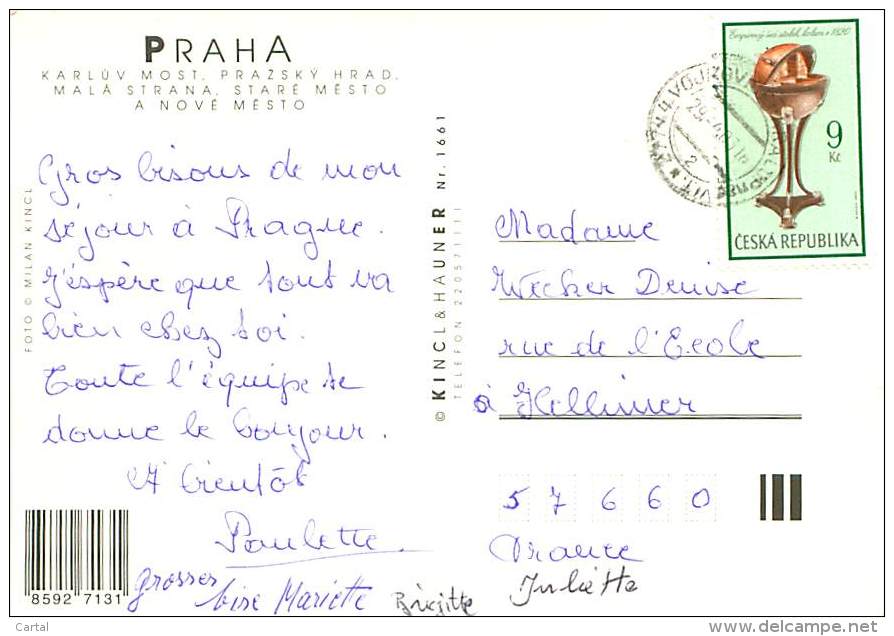 PRAHA
KARLŮV MOST, PRAŽSKÝ HRAD,
MALÁ STRANA, STARÉ MĚSTO
A NOVÉ MĚSTO
Gros bisous de mon
séjour à Prague.
J'espère que tout va
bien chez toi.
Toute l'équipe te
donne le bonjour.
A bientôt
Paulette
grosses
bise Mariette
Brigitte
Juliette
FOTO © MILAN KINCL
8592 7131
© KINCL & HAUNER Nr. 1661
TELEFON 220571111
9
Kč
ČESKÁ REPUBLIKA
Madame
Wecker Denise
rue de l'Ecole
à Hellimer
57660
France
Cartal
www.delcampe.net